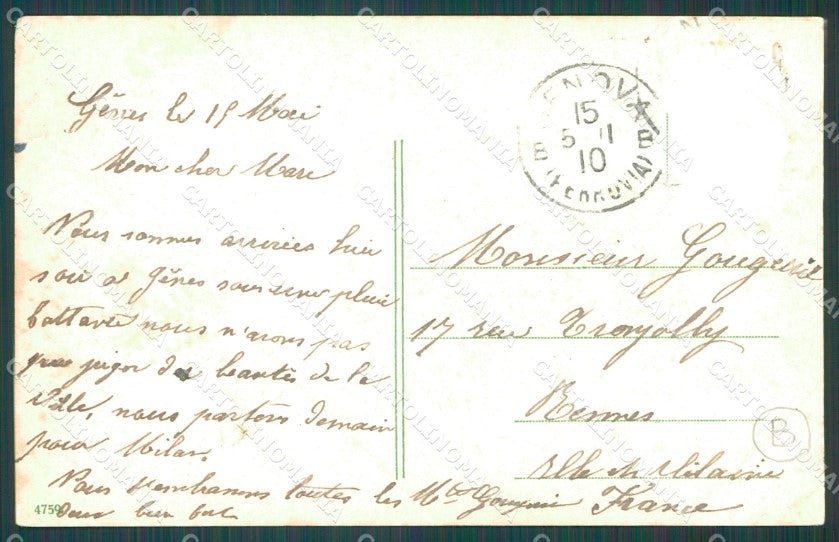 Gênes le 15 Mai
Mon cher Marc
Nous sommes arrivées hier
soir à Gênes sous une pluie
battante nous n'avons pas
pu juger des beautés de la
Ville, nous partons demain
pour Milan.
Nous t'embrassons toutes les
bien fort
4759
GENOVA
15
5 11
10
B B
(FERROVIA)
Monsieur
17 rue
Rennes
Ille et Vilaine
France
B
CARTOLINOMANIA